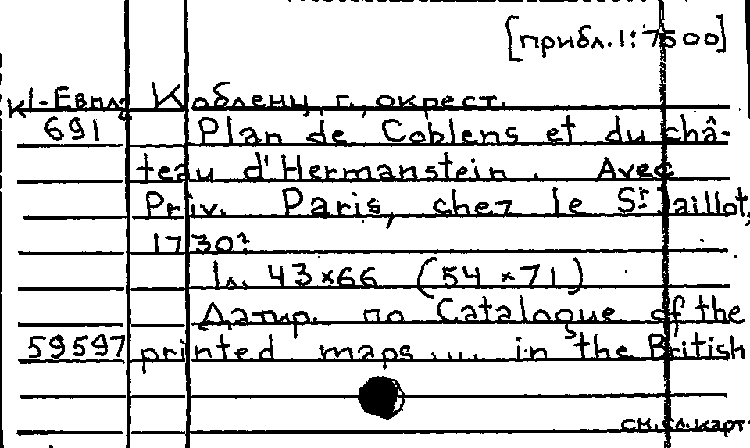 [прибл. 1:7500]
К1-Евпл Кобленц, г., окрест.
691 Plan de Coblens et du châ-
teau d'Hermanstein. Avec
Priv. Paris, chez le Sr Jaillot,
1730?
1 л. 43×66 (54×71)
Датир. по Catalogue of the
59597 printed maps ... in the British
см. сл. карт